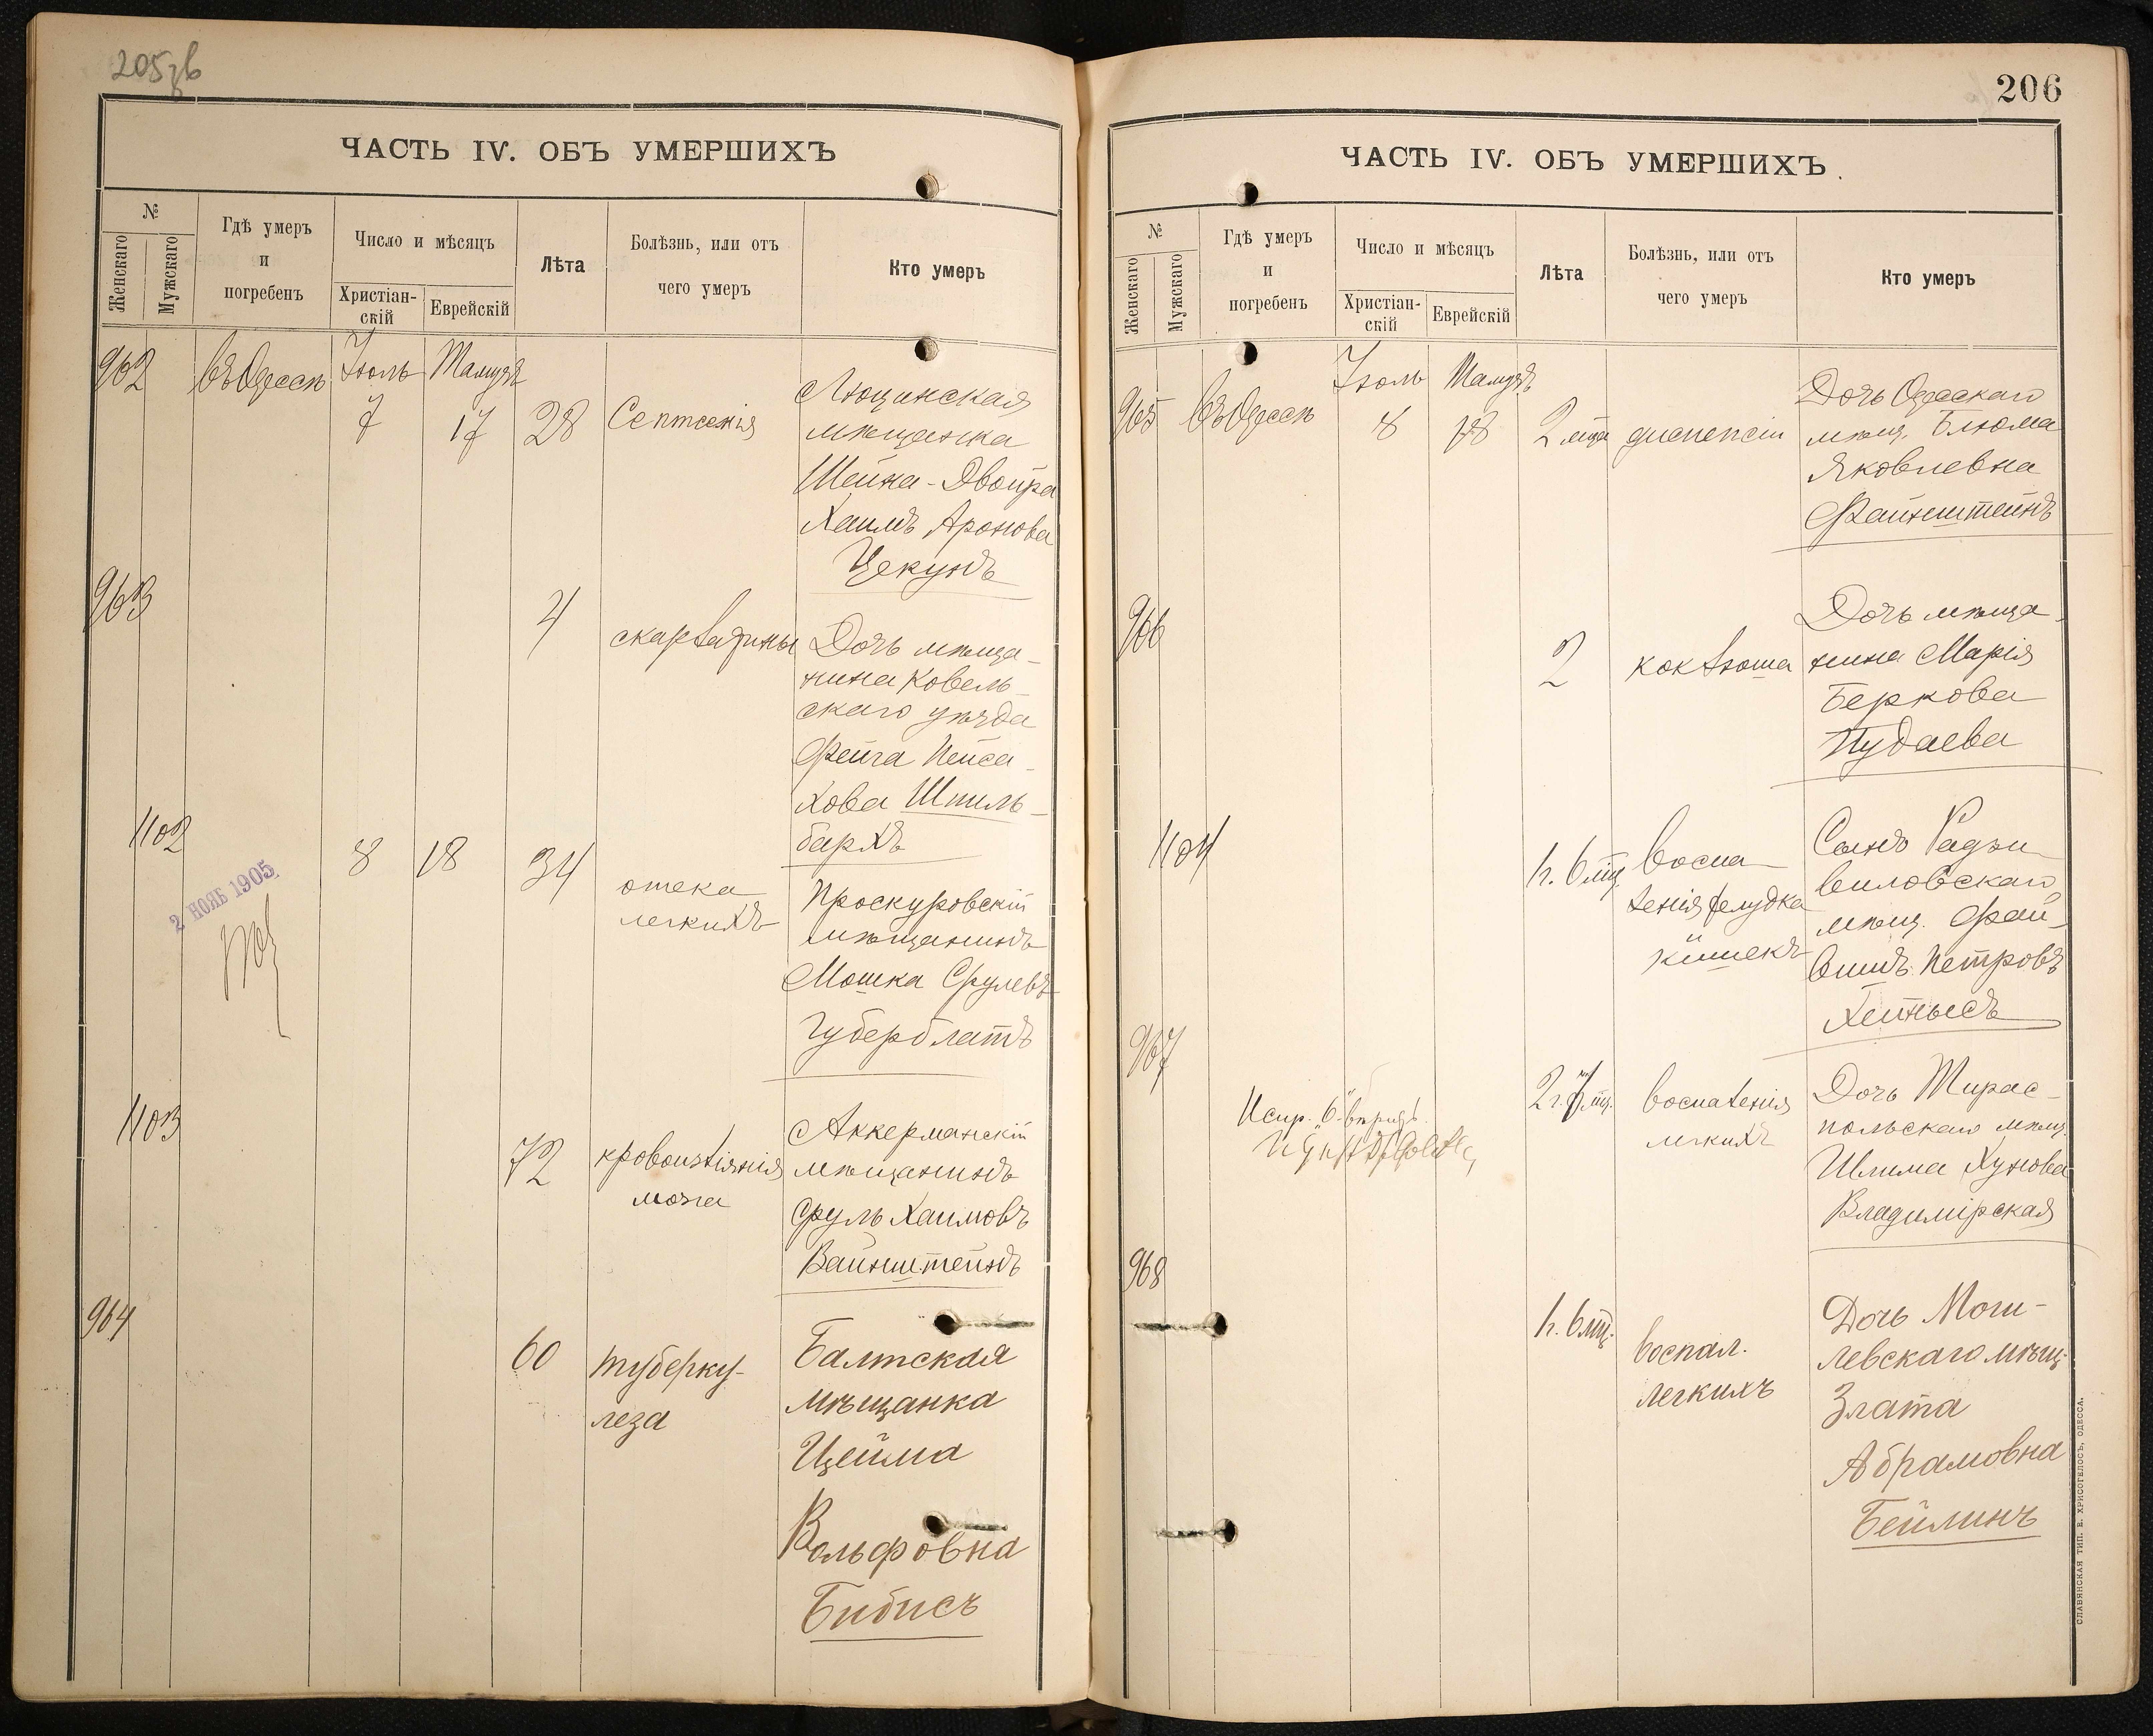 205 об
ЧАСТЬ IV. ОБЪ УМЕРШИХЪ
№
Женскаго
Мужскаго
Гдѣ умеръ
и
погребенъ
Число и мѣсяцъ
Христіан-
скій
Еврейскій
Лѣта
Болѣзнь, или отъ
чего умеръ
Кто умеръ
962 въ Одессѣ Іюль Тамузъ
7 17 28 Септсемія
Люцинская
мѣщанка
Шейна-Двойра
Хаимъ Аронова
Цекунъ
963
4 скарлатины
Дочь мѣща-
нина Ковель-
скаго уѣзда
Фейга Пейса-
хова Шпиль-
бархъ
1102
2 НОЯБ 1905
8 18 34 отека
легкихъ
Проскуровскій
мѣщанинъ
Мошка Срулевъ
Губерблатъ
1103
72 кровоизліянія
мозга
Аккерманскій
мѣщанинъ
Сруль Хаимовъ
Вайнштейнъ
964
60 туберку-
леза
Балтская
мѣщанка
Цейма
Вольфовна
Бибисъ
206
ЧАСТЬ IV. ОБЪ УМЕРШИХЪ
№
Женскаго
Мужскаго
Гдѣ умеръ
и
погребенъ
Число и мѣсяцъ
Христіан-
скій
Еврейскій
Лѣта
Болѣзнь, или отъ
чего умеръ
Кто умеръ
965 въ Одессѣ Іюль Тамузъ
8 18 2 мѣс диспепсіи
Дочь Одесскаго
мѣщ. Блюма
Яковлевна
Файнштейнъ
966
2 коклюша
Дочь мѣща-
нина Марія
Беркова
Пудаева
1104
1г. 6 мц. воспа-
ленія желудка
кишекъ
Сынъ Радзи-
виловскаго
мѣщ. Фай-
вишъ Петровъ
Хейнысъ
967
Испр. "6" вѣрядъ.
2г. 7 мц. воспаленія
легкихъ
Дочь Тирас-
польскаго мѣщ.
Шлима Хунова
Владимірская
968
1г. 6 мц. воспал.
легкихъ
Дочь Моги-
левскаго мѣщ.
Злата
Абрамовна
Бейлинъ
СЛАВЯНСКАЯ ТИП. Е. ХРИСОГЕЛОСЪ, ОДЕССА.